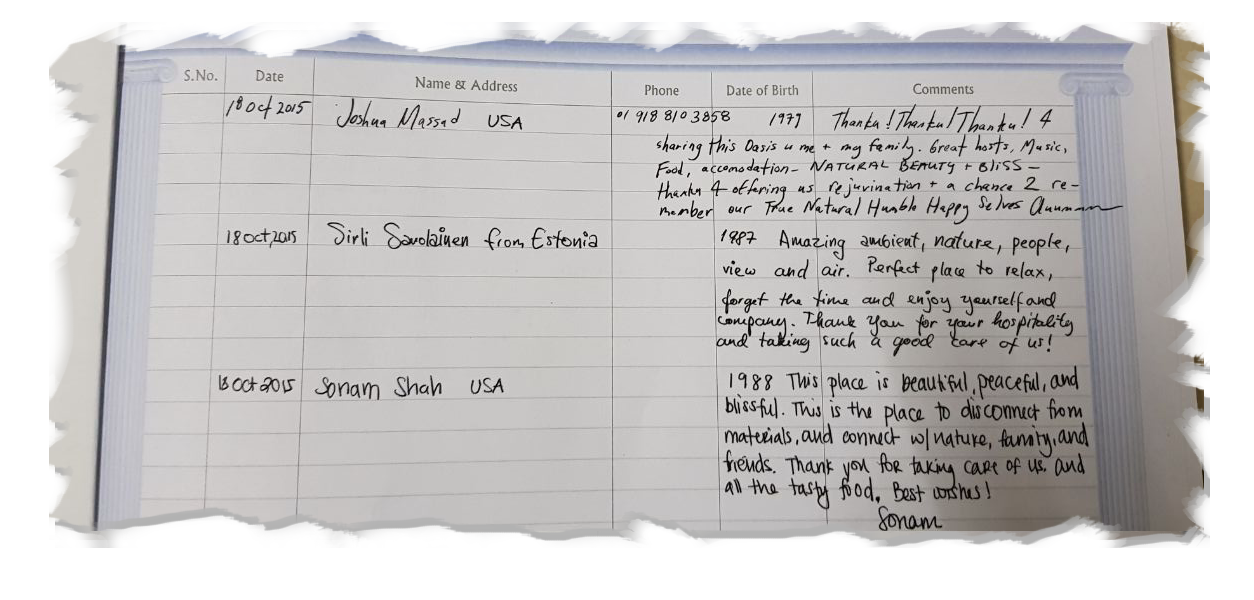 S.No. Date Name & Address Phone Date of Birth Comments
18 Oct 2015 Joshua Massad USA 01 918 810 3858 1977 Thanku! Thanku! Thanku! 4
sharing this Oasis w me + my family. Great hosts, Music,
Food, accomodation - NATURAL BEAUTY + BLISS -
thanku 4 offering us rejuvination + a chance 2 re-
member our True Natural Humble Happy Selves
18 Oct, 2015 Sirli Savolainen from Estonia 1987 Amazing ambient, nature, people,
view and air. Perfect place to relax,
forget the time and enjoy yourself and
company. Thank You for your hospitality
and taking such a good care of us!
18 Oct 2015 Sonam Shah USA 1988 This place is beautiful, peaceful, and
blissful. This is the place to disconnect from
materials, and connect w/ nature, family, and
friends. Thank you for taking care of us. and
all the tasty food. Best wishes!
Sonam